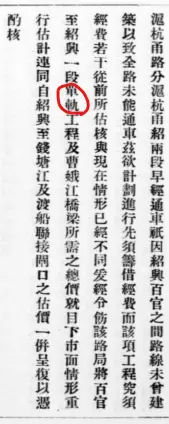 滬杭甬路分滬杭甬紹兩段早經通車祇因紹興百官之間路線未曾建
築以致全路未能通車茲欲計劃進行先須籌借經費而該項工程究須
經費若干從前所估核與現在情形已經不同爰經令飭該路局將百官
至紹興一段單軌工程及曹娥江橋梁所需之總價就目下市面情形重
行估計連同自紹興至錢塘江及渡船聯接閘口之估價一併呈復以憑
酌核